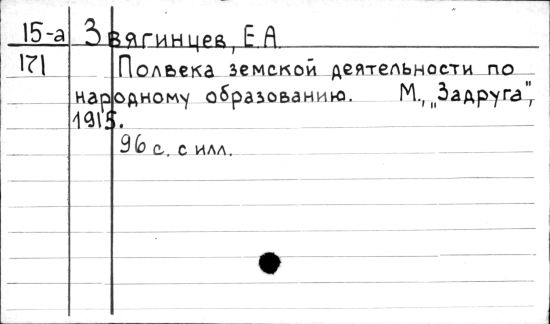 15-а Звягинцев, Е.А.
171 Полвека земской деятельности по
народному образованию. М., „Задруга",
1915.
96 с. с илл.